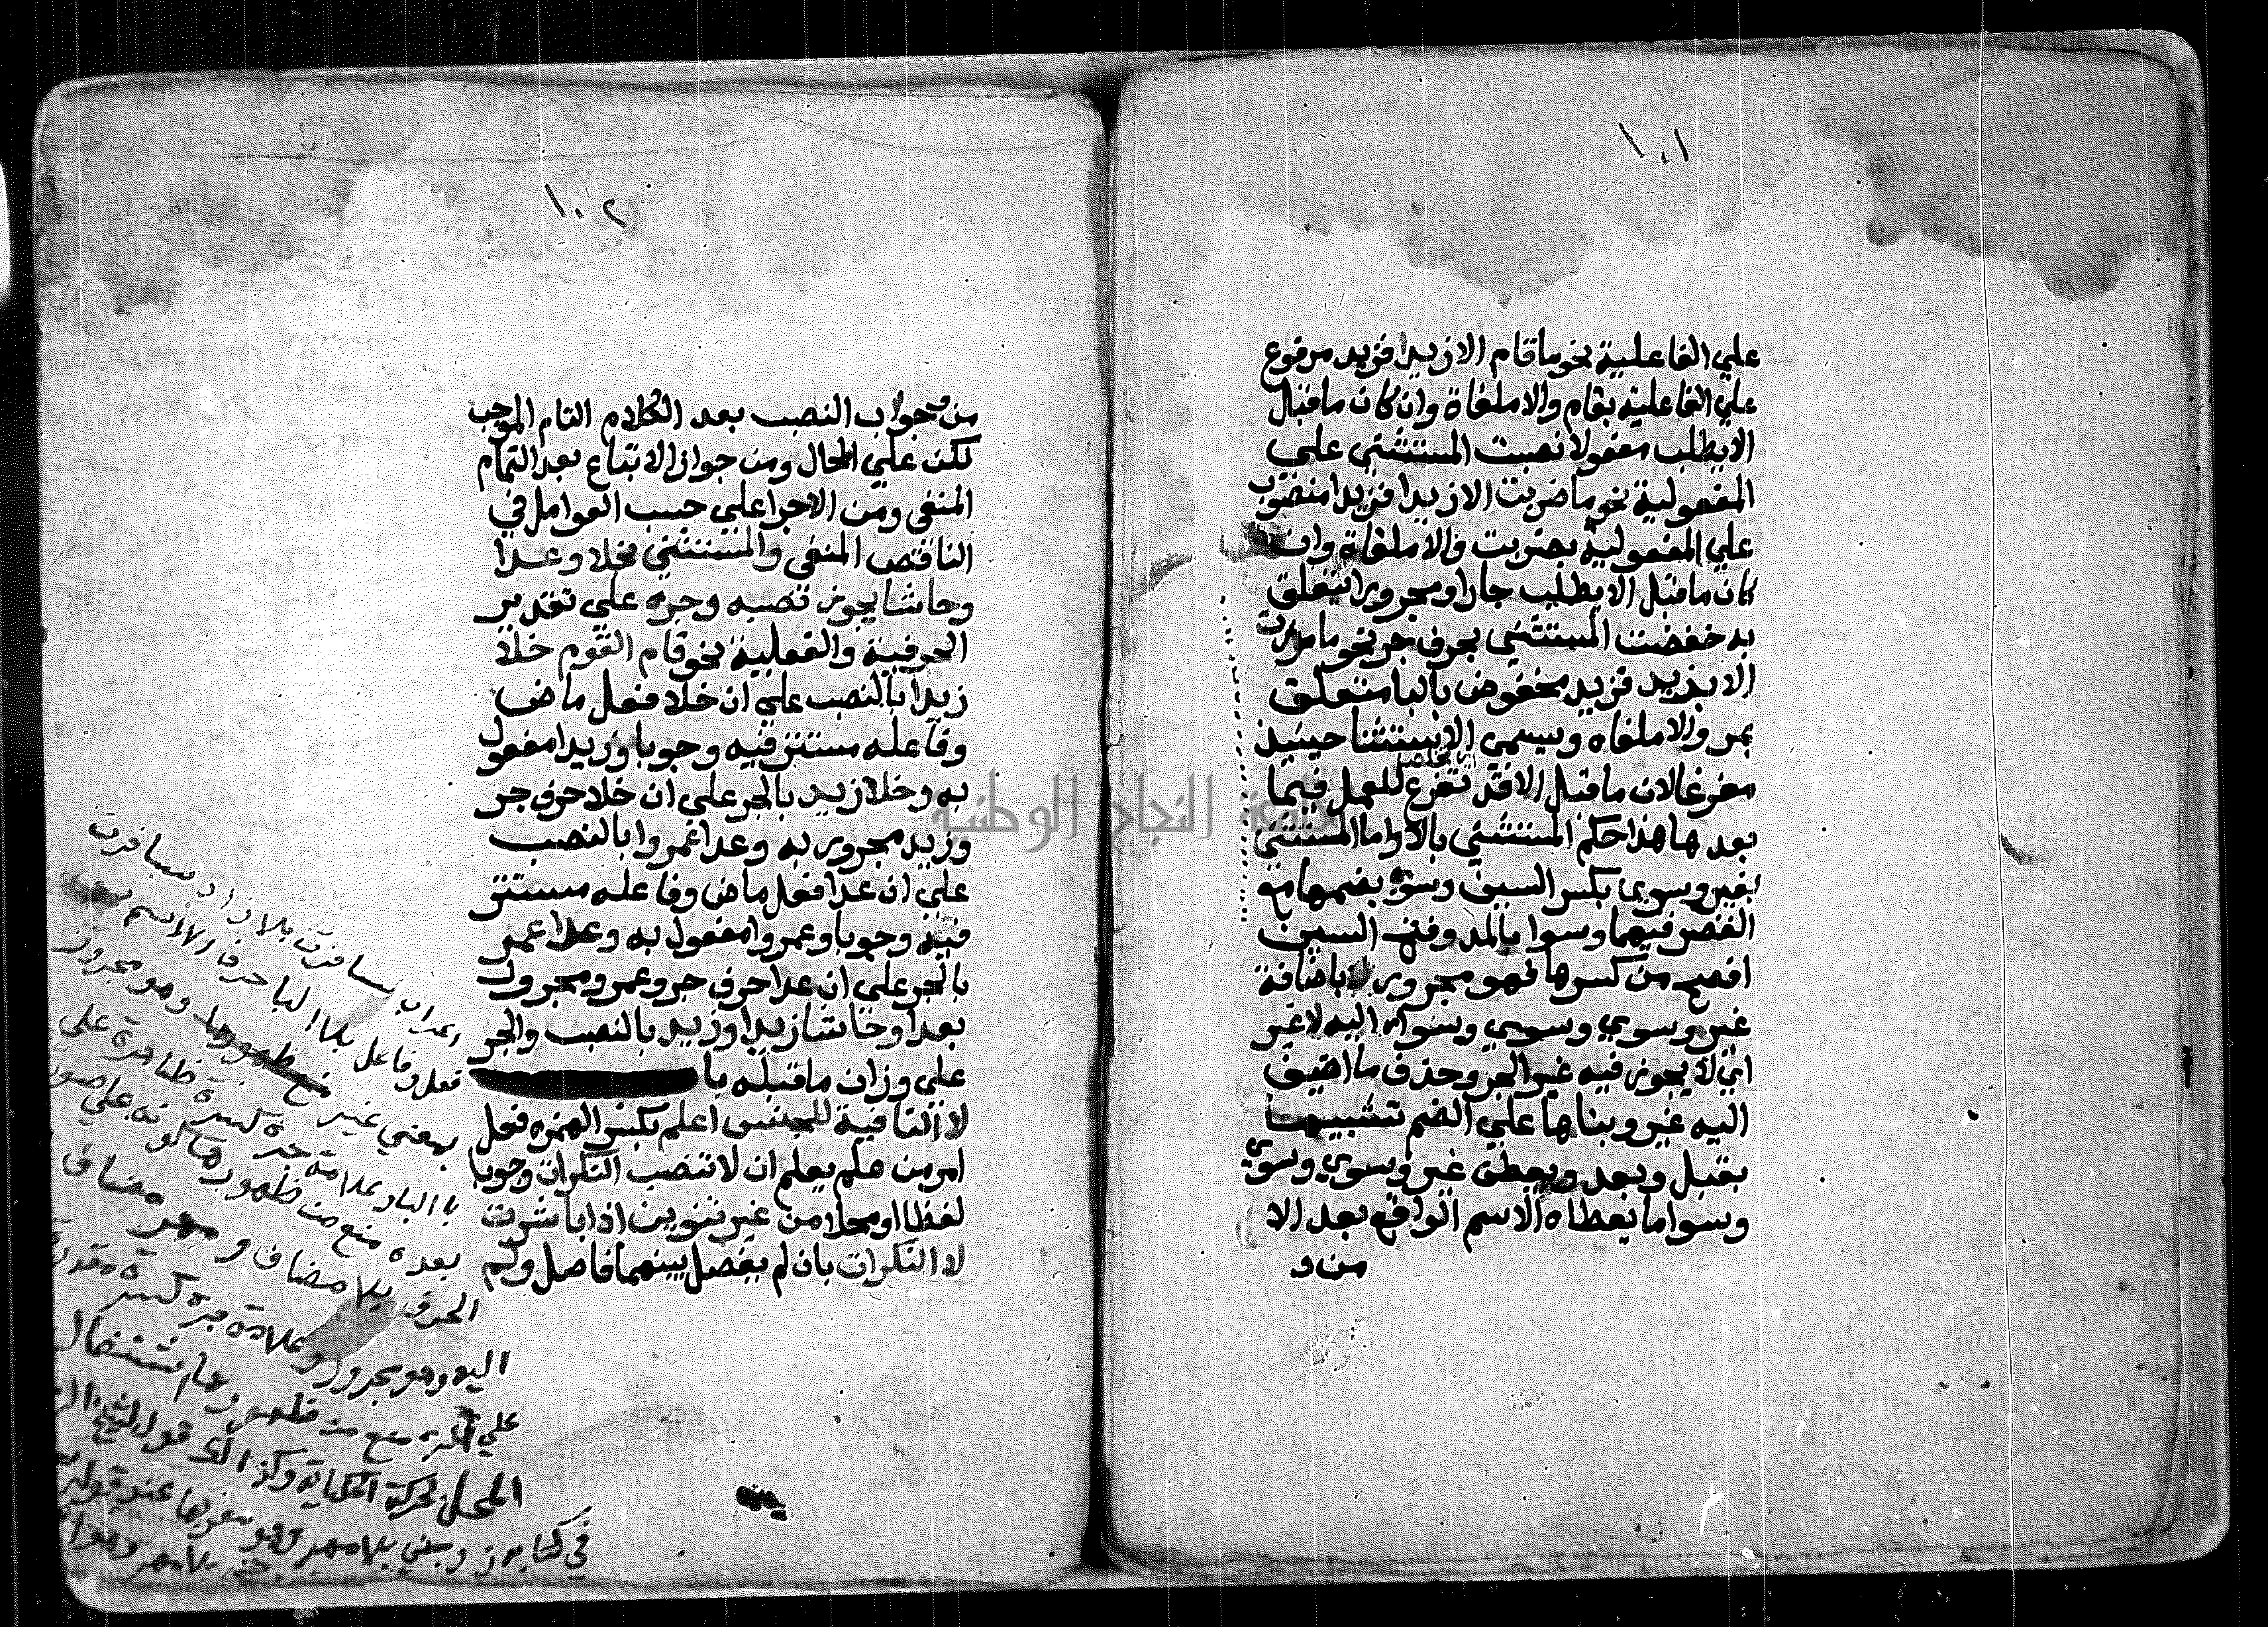 ١٠١
علي الفاعلية نحو ما قام الا زيد افزيد مرفوع
علي الفاعلية بقام والا ملغاة وان كان ما قبل
الا يطلب مفعولا نصبت المستثني علي
المفعولية نحو ما ضربت الا زيدا فزيدا منصوب
علي المفعولية بضربت والا ملغاة وان
كان ما قبل الا يطلب جارا ومجرورا يتعلق
به خفضت المستثني بحرف جر نحو ما مررت
الا بزيد فزيد مخفوض بالبا متعلق
بمر والا ملغاه ويسمي الاستثنا حينيذ
مفرغا لان ما قبل الا قد تفرغ للعمل فيما
بعدها هذا حكم المستثني بالا واما المستثني
بغير وسوي بكسر السين وسوي بضمها مع
القصر فيهما وسوا بالمد وفتح السين
افصح من كسرها فهو مجرور باضافة
غير وسوي وسوي وسوآء اليه لا غير
اي لا يجوز فيه غير الجر وحذف ما اضيف
اليه غير وبناها علي الضم تشبيها
بقبل وبعد ويعطي غير وسوي وسوي
وسوا ما يعطاه الاسم الواقع بعد الا
من و
١٠٢
من وجواب النصب بعد الكلام التام الموجب
لكن علي الحال ومن جواز الاتباع بعد التمام
المنفي ومن الاجرا علي حسب العوامل في
الناقص المنفي والمستثني بخلا وعدا
وحاشا يجوز نصبه وجره علي تقدير
الحرفية والفعلية نحو قام القوم خلا
زيدا بالنصب علي ان خلا فعل ماض
وفاعله مستتر فيه وجوبا وزيدا مفعول
به وخلا زيد بالجر علي ان خلا حرف جر
وزيد مجرور به وعدا عمروا بالنصب
علي ان عدا فعل ماض وفاعله مستتر
فيه وجوبا وعمروا مفعول به وعدا عمر
بالجر علي ان عدا حرف جر وعمرو مجرور
بعدا وحاشا زيدا وزيد بالنصب والجر
علي وزان ما قبله با
لا النافية للجنس اعلم بكسر الهمزه فعل
امر من علم يعلم ان لا تنصب النكرات وجوبا
لفظا او محلا من غير تنوين اذا باشرت
لا النكرات بان لم يفصل بينهما فاصل ولم
اعراب سافرت بلا زاد سافرت
فعل وفاعل بلا البا حرف الا اسم
بمعني غير ظهورها وهو مجرور
با البا وعلامة جره كسرة ظاهرة علي
بعده منع من ظهورها كونه علي صورة
الحرف بلا مضاف و مضاف
اليه وهو مجرور وعلامة جره كسرة مقدرة
علي منع من ظهورها اشتغال
المحل بحركة الحكاية وكذالك قول الشيخ